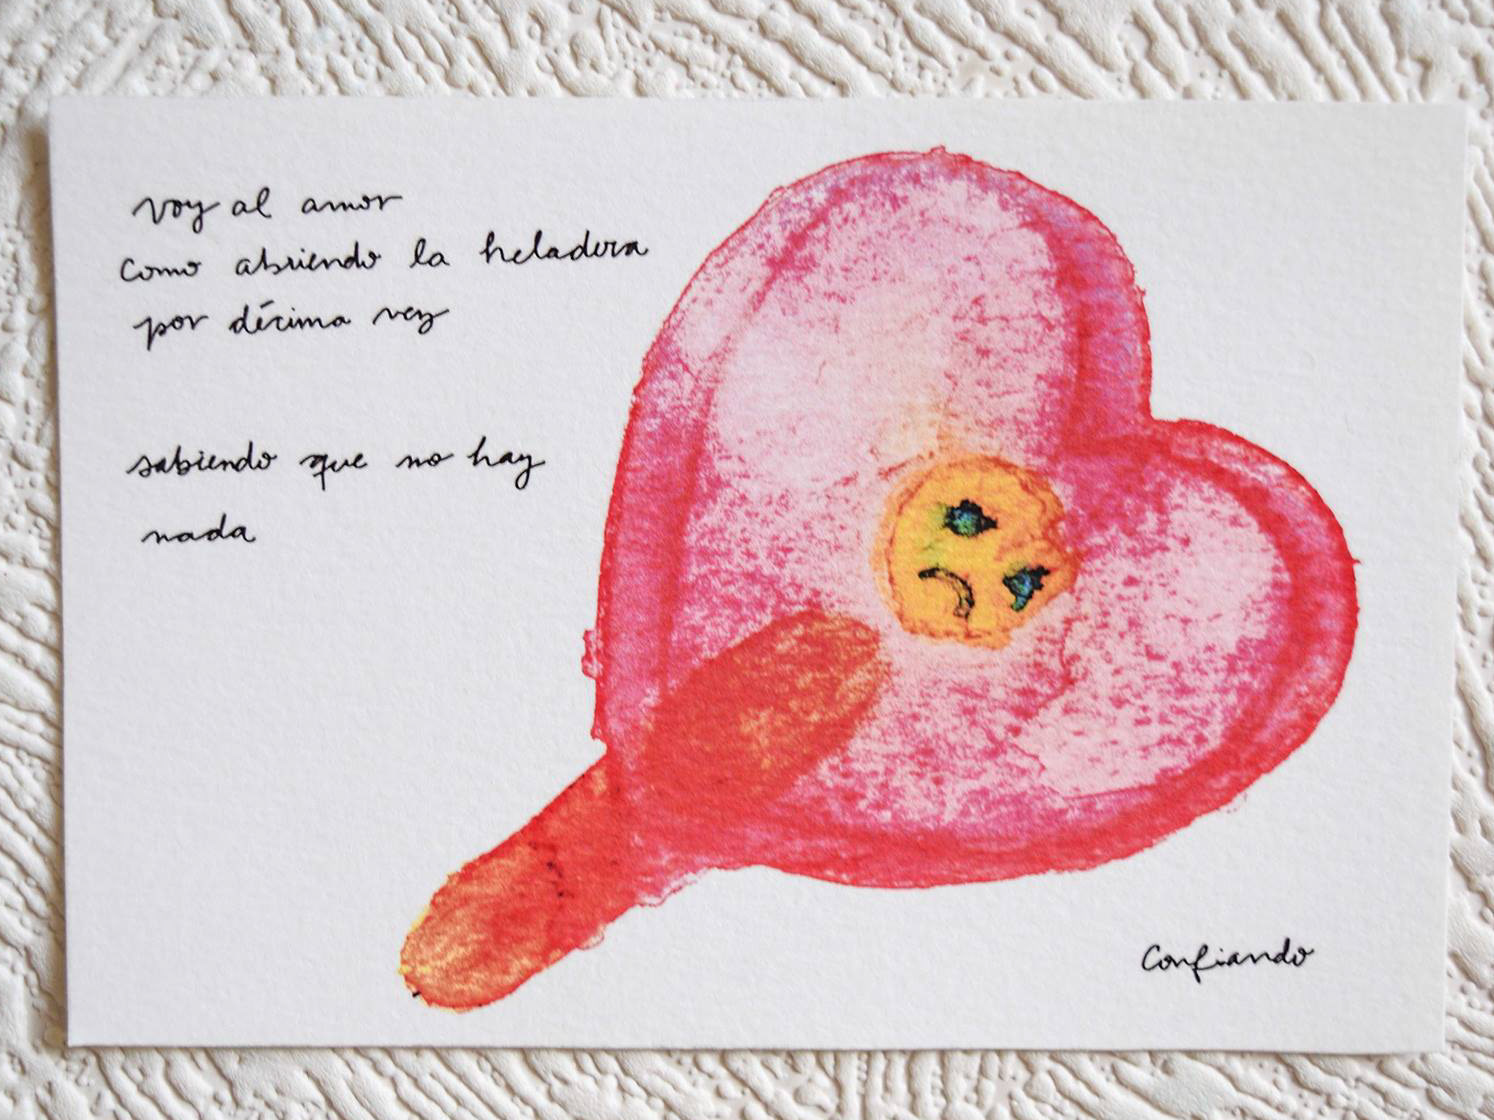 voy al amor
como abriendo la heladera
por décima vez
sabiendo que no hay
nada
Confiando